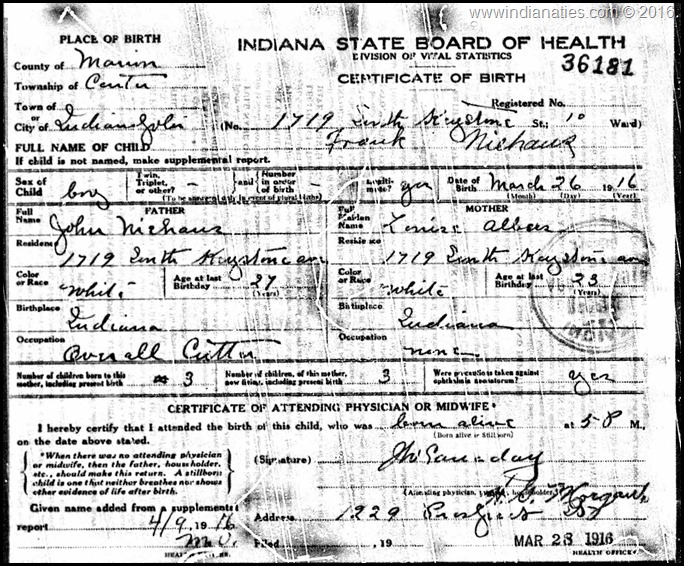 www.indianaties.com © 2016
PLACE OF BIRTH
INDIANA STATE BOARD OF HEALTH
DIVISION OF VITAL STATISTICS
36181
County of Marion
CERTIFICATE OF BIRTH
Township of Center
Town of
or
Registered No.
City of Indianapolis (No. 1719 South Keystone St; 10 Ward)
FULL NAME OF CHILD Frank Niehaus
If child is not named, make supplemental report.
Sex of Child boy Twin, Triplet, or other? — and Number in order of birth — Legiti-mate? yes Date of Birth March 26 1916
(To be answered only in event of plural births) (Month) (Day) (Year)
FATHER MOTHER
Full Name John Niehaus Full Maiden Name Louise Albers
Residence 1719 South Keystone av Residence 1719 South Keystone av
Color or Race White Age at last Birthday 27 (Years) Color or Race White Age at last Birthday 23 (Years)
Birthplace Indiana Birthplace Indiana
Occupation Overall Cutter Occupation none
Number of children born to this mother, including present birth 3 Number of children, of this mother, now living, including present birth 3 Were precautions taken against ophthalmia neonatorum? yes
CERTIFICATE OF ATTENDING PHYSICIAN OR MIDWIFE*
I hereby certify that I attended the birth of this child, who was born alive at 5 P M.,
(Born alive or Stillborn)
on the date above stated.
*When there was no attending physician
or midwife, then the father, householder,
etc., should make this return. A stillborn
child is one that neither breathes nor shows
other evidence of life after birth.
(Signature)
(Attending physician, householder.)
Given name added from a supplemental
report 4/9, 1916
Address 1229 Prospect St
Filed , 19 MAR 28 1916
HEALTH OFFICER